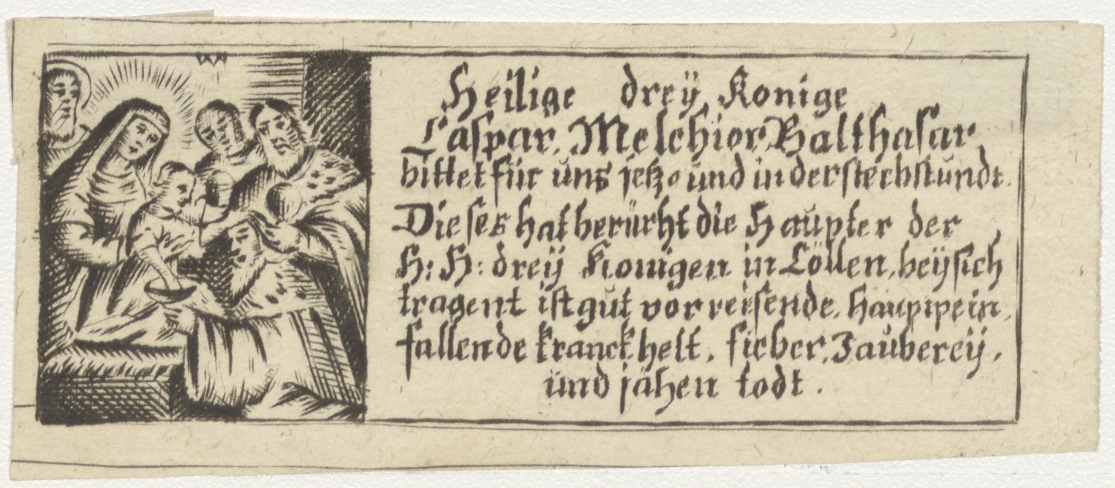 Heilige dreÿ Konige
Caspar. Melchior, Balthasar
bittet für uns jetz. und in der sterbstundt.
Dieses hat berürht die Haupter der
H: H: dreÿ Konigen in Cöllen, beÿ sich
tragent ist gut vor reisende. Hauptpein,
fallende kranckheit, fieber, Zauberey,
und jähen todt.